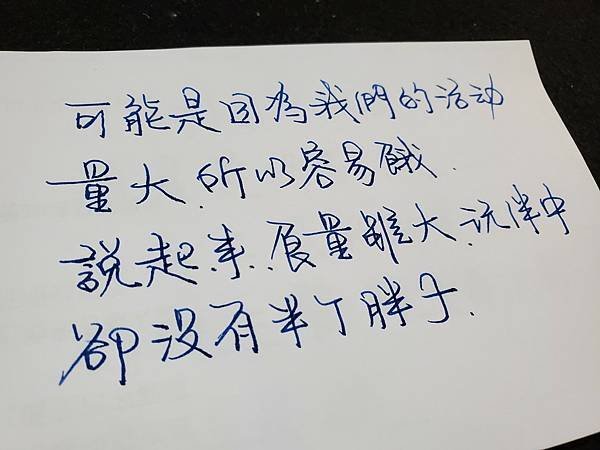 可能是因為我們的活动
量大.所以容易餓.
說起來.食量雖大.玩伴中
卻沒有半个胖子.